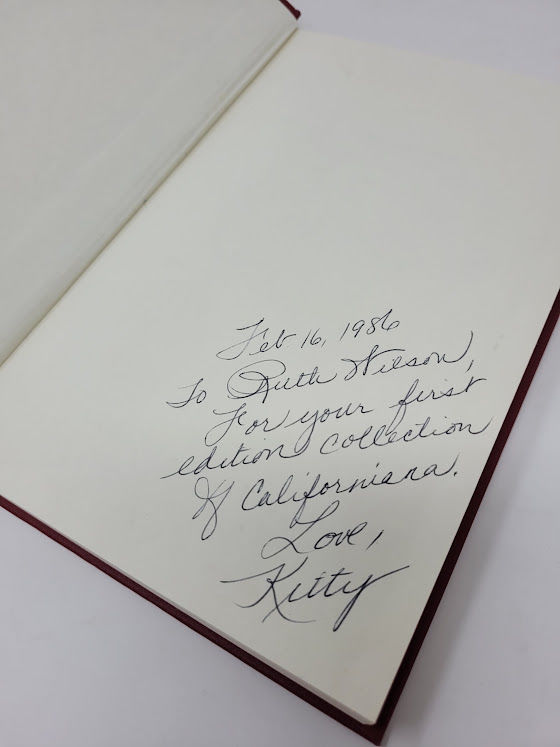 Feb 16, 1986
To Ruth Wilson,
For your first
edition collection
of Californiana.
Love,
Kitty